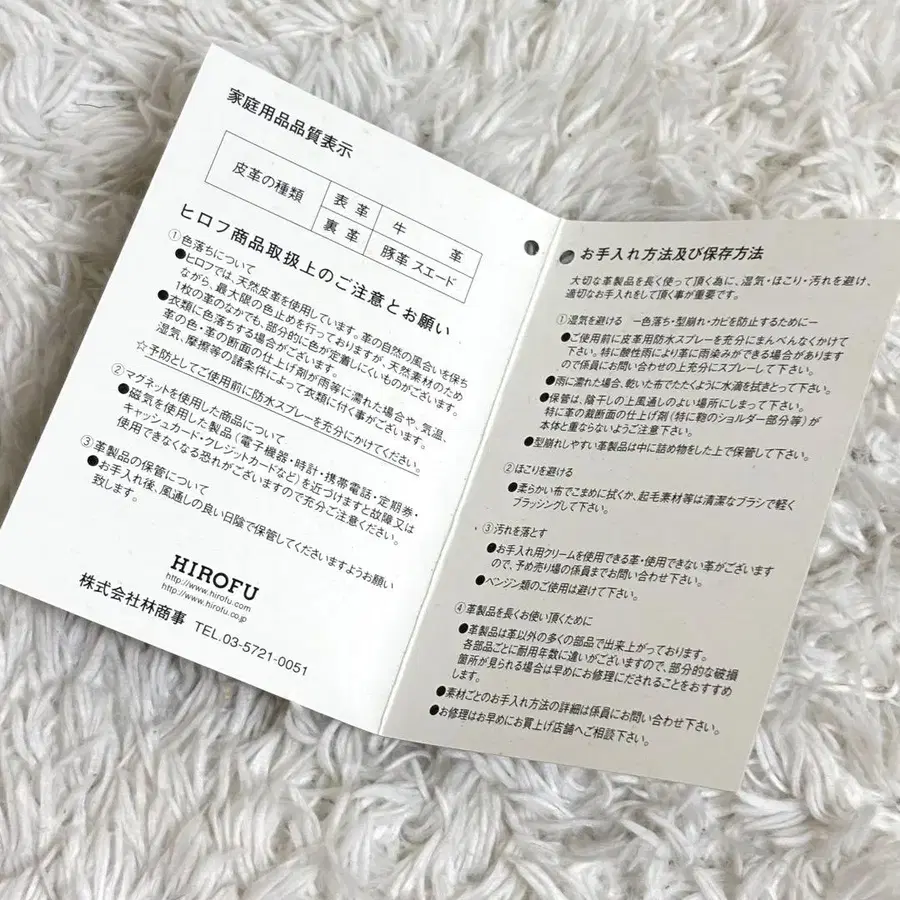 家庭用品品質表示
皮革の種類
表 革
牛 革
裏 革
豚革 スエード
ヒロフ商品取扱上のご注意とお願い
①色落ちについて
●ヒロフでは、天然皮革を使用しています。革の自然の風合いを保ち
ながら、最大限の色止めを行っておりますが、天然素材のため
1枚の革のなかでも、部分的に色が定着しにくいものがございます。
●衣類に色落ちする場合がございます。
革の色・革の断面の仕上げ剤が雨等に濡れた場合や、気温、
湿気、摩擦等の諸条件によって衣類に付く事がございます。
☆予防としてご使用前に防水スプレーを充分にかけてください。
②マグネットを使用した商品について
●磁気を使用した製品（電子機器・時計・携帯電話・定期券、
キャッシュカード・クレジットカードなど）を近づけますと故障又は
使用できなくなる恐れがございますので充分ご注意ください。
③革製品の保管について
●お手入れ後、風通しの良い日陰で保管してくださいますようお願い
致します。
HIROFU
http://www.hirofu.com
http://www.hirofu.co.jp
株式会社林商事 TEL.03-5721-0051
お手入れ方法及び保存方法
大切な革製品を長く使って頂く為に、湿気・ほこり・汚れを避け、
適切なお手入れをして頂く事が重要です。
①湿気を避ける ー色落ち・型崩れ・カビを防止するためにー
●ご使用前に皮革用防水スプレーを充分にまんべんなくかけて
下さい。特に酸性雨により革に雨染みができる場合があります
ので係員にお問い合わせの上充分にスプレーして下さい。
●雨に濡れた場合、乾いた布でたたくように水滴を拭きとって下さい。
●保管は、陰干しの上風通しのよい場所にしまって下さい。
特に革の裁断面の仕上げ剤（特に鞄のショルダー部分等）が
本体と重ならないようご注意下さい。
●型崩れしやすい革製品は中に詰め物をした上で保管して下さい。
②ほこりを避ける
●柔らかい布でこまめに拭くか、起毛素材等は清潔なブラシで軽く
ブラッシングして下さい。
③汚れを落とす
●お手入れ用クリームを使用できる革・使用できない革がございます
ので、予め売り場の係員までお問い合わせ下さい。
●ベンジン類のご使用は避けて下さい。
④革製品を長くお使い頂くために
●革製品は革以外の多くの部品で出来上がっております。
各部品ごとに耐用年数に違いがございますので、部分的な破損
箇所が見られる場合は早めにお修理にだされることをおすすめ
します。
●素材ごとのお手入れ方法の詳細は係員にお問い合わせ下さい。
●お修理はお早めにお買上げ店舗へご相談下さい。